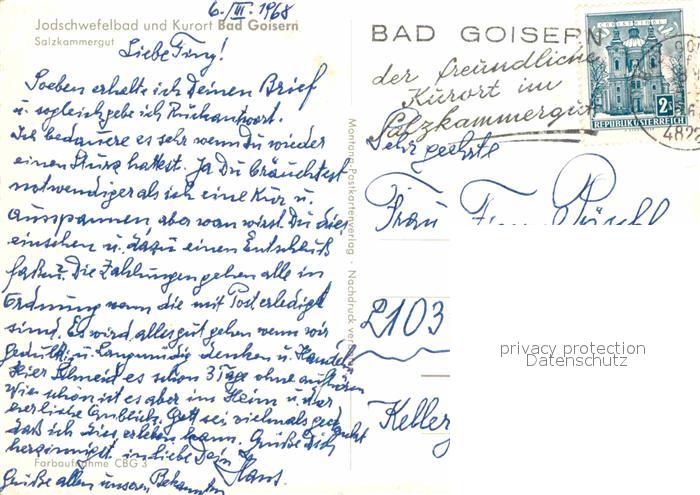 6./III. 1968
Jodschwefelbad und Kurort Bad Goisern
Salzkammergut
Liebe Finy!
Soeben erhalte ich Deinen Brief
u. sogleich gebe ich Rückantwort.
Ich bedauere es sehr wenn Du wieder
einen Sturz hattest. Ja Du bräuchtest
notwendiger als ich eine Kur u.
Ausspannen, aber wan wirst Du dies
einsehen u. dazu einen Entschluß
faßen? Die Zahlungen gehen alle in
Ordnung wenn die mit Post erledigt
sind. Es wird alles gut gehen wenn wir
geduldig u. Langmüdig denken u. Handeln
Hier schneid es schon 3 Tage ohne aufhören
Wie schön ist es aber im Heim u. der
herrliche Anblick. Gott sei vielmals gedankt
daß ich dies erleben kann. Grüße Dich
herzinnigst in liebe Dein
Hans.
Farbaufnahme CBG 3
Grüße allen unseren Bekannten
Montana Postkartenverlag · Nachdruck
BAD GOISERN
der freundliche
Kurort im
Salzkammergut
CHRISTKINDL
2 S
REPUBLIK ÖSTERREICH
4822
Sehr geehrte
Frau
2103
Keller
privacy protection
Datenschutz